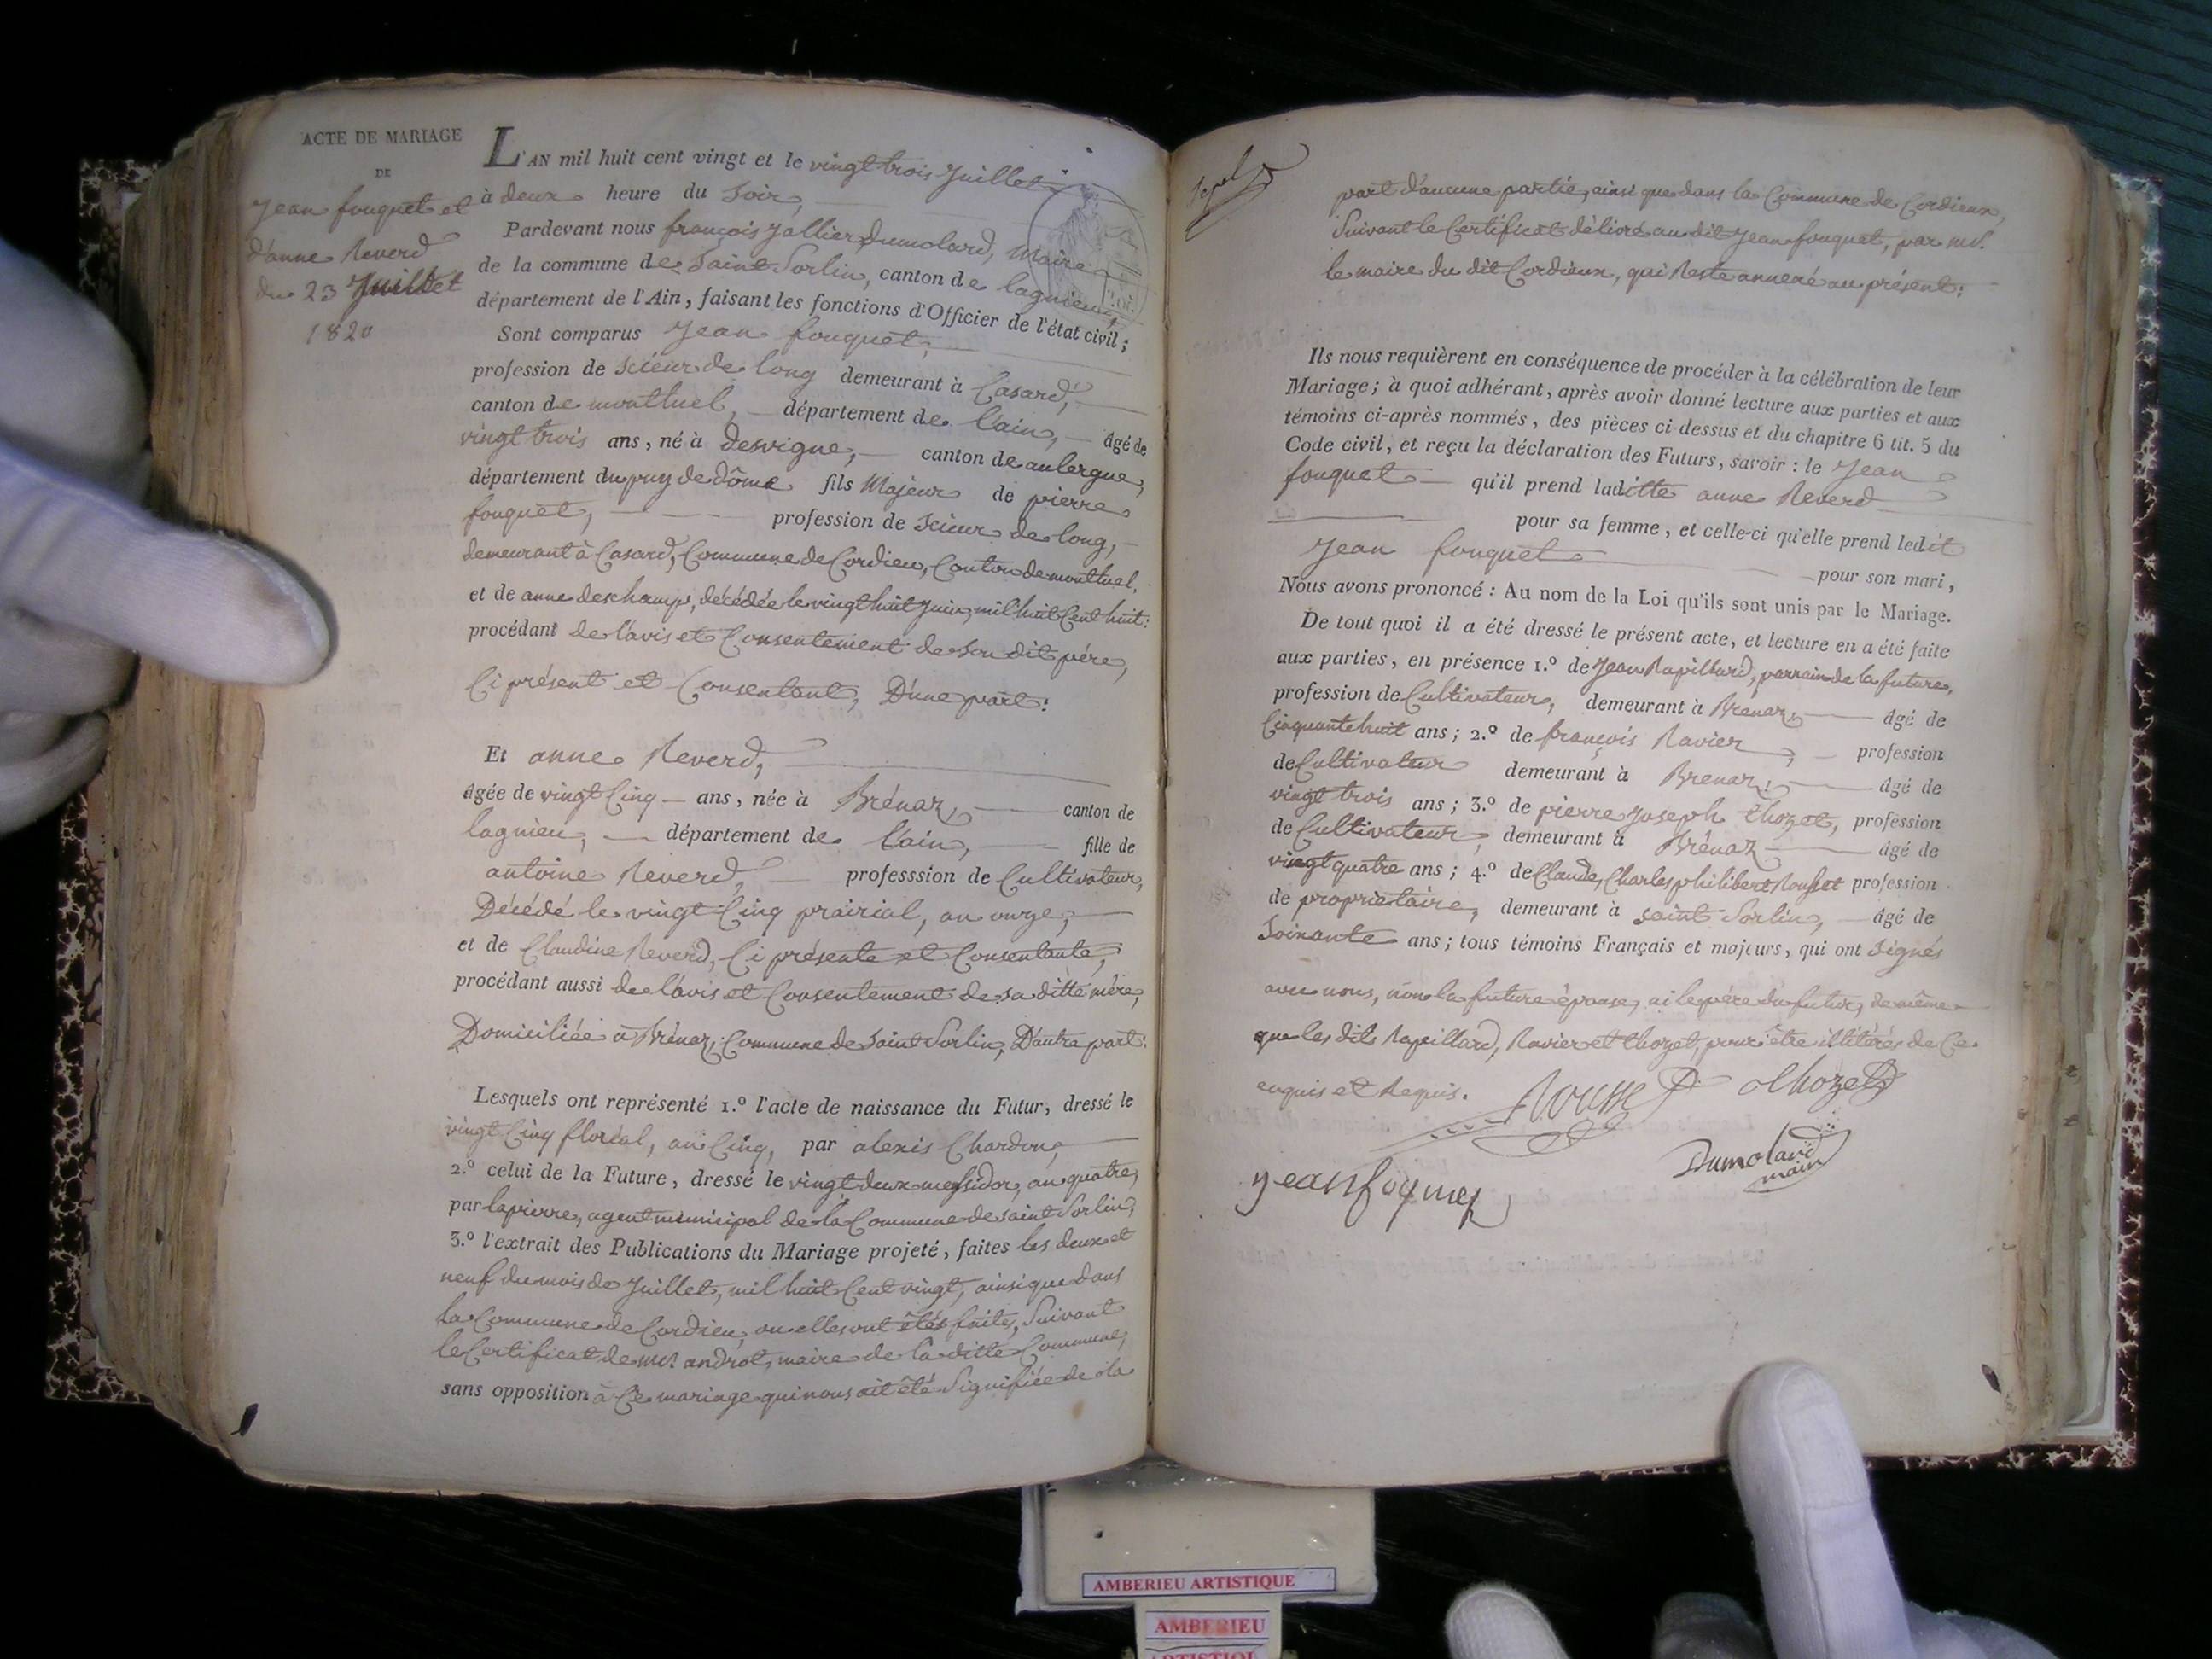 ACTE DE MARIAGE
DE
Jean fouquet et
d'anne Reverd
du 23 Juillet
1820
L'AN mil huit cent vingt et le vingt trois Juillet
à deux heure du Soir,
Pardevant nous françois Jallier Dumolard, Maire
de la commune de Saint Sorlin, canton de lagnieu,
département de l'Ain, faisant les fonctions d'Officier de l'état civil;
Sont comparus Jean fouquet,
profession de scieur de long demeurant à Casard,
canton de montluel, département de l'ain, âgé de
vingt trois ans, né à desvigne, canton de aulergue,
département du puy de dôme fils Majeur de pierre
fouquet, profession de scieur de long,
demeurant à Casard, Commune de Cordieu, Canton de montluel,
et de anne deschamps, décédée le vingt huit Juin, mil huit Cent huit:
procédant de l'avis et Consentement de son dit père,
Ci présent et Consentant, D'une part:
Et anne Reverd,
âgée de vingt Cinq ans, née à Brénaz, canton de
lagnieu, département de l'ain, fille de
antoine Reverd, professsion de Cultivateur,
Décédé le vingt Cinq prairial, an onze,
et de Claudine Reverd, Ci présente et Consentante,
procédant aussi de l'avis et Consentement de sa ditte mère,
Domiciliée à Brénaz, Commune de Saint Sorlin, D'autre part:
Lesquels ont représenté 1.º l'acte de naissance du Futur, dressé le
vingt Cinq floréal, an Cinq, par alexis Chardon,
2.º celui de la Future, dressé le vingt deux messidor, an quatre,
par lapierre, agent municipal de la Commune de saint Sorlin,
3.º l'extrait des Publications du Mariage projeté, faites les deux et
neuf du mois de Juillet, mil huit Cent vingt, ainsi que dans
la Commune de Cordieu, ou elles ont étés faites, Suivant
le Certificat de Mr. andrôt, maire de la ditte Commune,
sans opposition à Ce mariage qui nous ait été Signifiée de la
part d'aucune partie, ainsi que dans la Commune de Cordieux,
Suivant le Certificat délivré au dit Jean fouquet, par Mr.
le maire du dit Cordieux, qui Reste annexé au présent:
Ils nous requièrent en conséquence de procéder à la célébration de leur
Mariage; à quoi adhérant, après avoir donné lecture aux parties et aux
témoins ci-après nommés, des pièces ci-dessus et du chapitre 6 tit. 5 du
Code civil, et reçu la déclaration des Futurs, savoir: le Jean
fouquet qu'il prend laditte anne Reverd
pour sa femme, et celle-ci qu'elle prend ledit
Jean fouquet pour son mari,
Nous avons prononcé: Au nom de la Loi qu'ils sont unis par le Mariage.
De tout quoi il a été dressé le présent acte, et lecture en a été faite
aux parties, en présence 1.º de Jean Rapillard, parrain de la future,
profession de Cultivateur, demeurant à Brénaz, âgé de
Cinquante huit ans; 2.º de françois Ravier, profession
de Cultivateur demeurant à Brenaz, âgé de
vingt trois ans; 3.º de pierre Joseph thozet, profession
de Cultivateur, demeurant à Brénaz âgé de
vingt quatre ans; 4.º de Claude, Charles philibert Rousset profession
de propriétaire, demeurant à saint Sorlin, âgé de
Soixante ans; tous témoins Français et majeurs, qui ont signés
avec nous, non la future épouse, ni le père du futur, de même
que les dits Rapillard, Ravier et thozet, pour être illitérés de Ce
enquis et Requis. Rousset thozet
Dumolard
maire